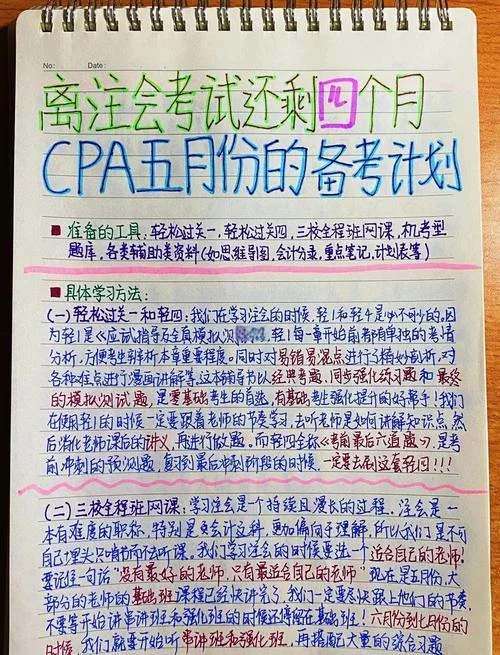 No: Date:
离注会考试还剩四个月
CPA五月份的备考计划
■ 准备的工具: 轻松过关一, 轻松过关四, 三校全程班网课, 机考型
题库, 各类辅助类资料(如思维导图, 会计分录, 重点笔记, 计划表等)
■ 具体学习方法:
(一) 轻松过关一和轻四: 我们在学习注会的时候, 轻1和轻4是必不可少的. 因
为轻1是《应试指导及全真模拟测试》, 轻1每一章开始前都有单独的考情
分析, 方便考生辩析本章重要程度. 同时对易错易混点进行了精妙剖析, 对
各种难点进行漫画讲解等, 这本辅导书以经典考题, 同步强化练习题和最终
的模拟测试题, 是零基础考生的首选, 有基础考生强化提升的好帮手! 我们
在使用轻1的时候一定要跟着老师的节奏学习, 去听老师是如何讲解知识点, 然
后消化老师课后的讲义, 再进行做题. 而轻四全称《考前最后六道题》, 是考
前冲刺的预测题, 复习到最后冲刺阶段的时候, 一定要去刷这套轻四!!!
(二) 三校全程班网课: 学习注会是个持续且漫长的过程, 注会是一
本有难度的职称, 特别是会计这科, 更加偏向于理解, 所以我们是不可
自己埋头只啃书而不听课. 我们学习注会的时候要选一个适合自己的老师!
要记住一句话"没有最好的老师, 只有最适合自己的老师" 现在是五月份, 大
部分的老师的基础班课程已经快讲完了, 我们一定要尽快跟上他们的节奏,
不要等开始讲串讲班和强化班的时候还停留在基础班! 六月份到七月份的
时候, 我们就要开始听串讲班和强化班, 再搭配大量的综合习题